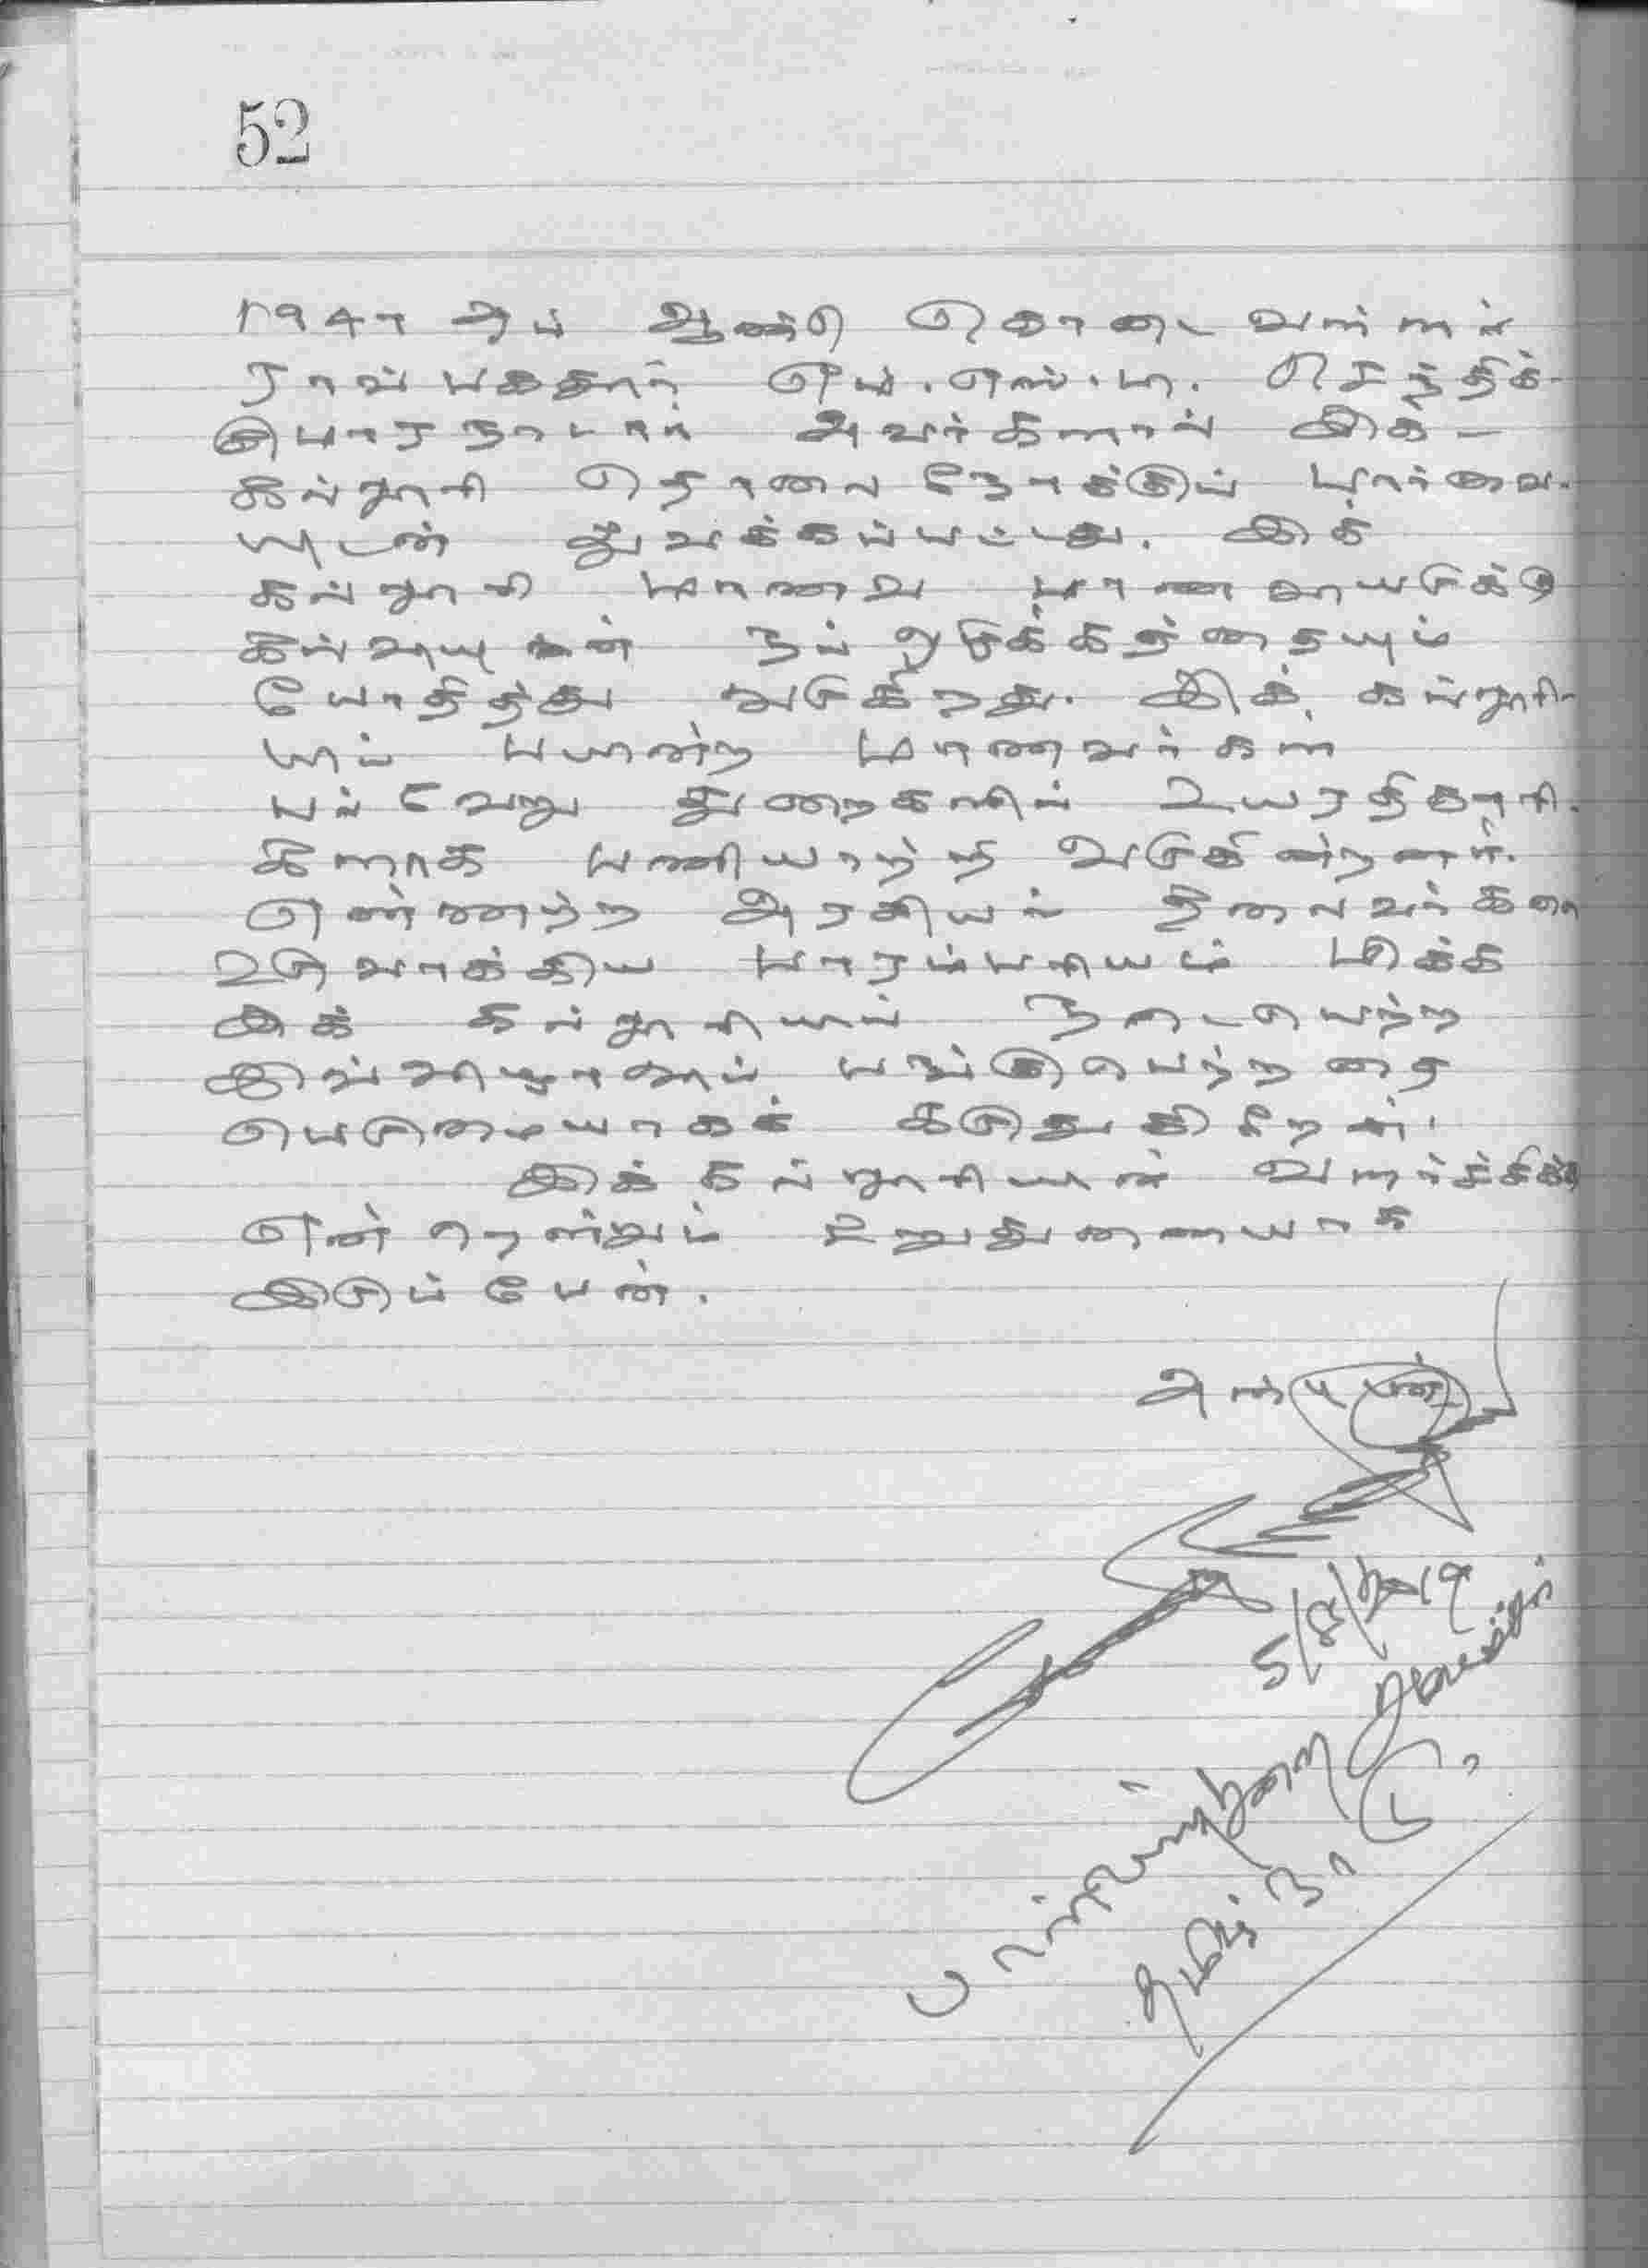 52
1947 ஆம் ஆண்டு கொடை வள்ளல்
ராவ் பகதூர் எம்.எஸ்.பி. செந்திக்-
குமாரநாடார் அவர்களால் இக்-
கல்லூரி தொலை நோக்குப் பார்வை-
யுடன் துவக்கப்பட்டது. இக்
கல்லூரி மாணவ மாணவியருக்கு
கல்வியுடன் நல் ஒழுக்கத்தையும்
போதித்து வருகிறது. இக் கல்லூரி-
யில் பயின்ற மாணவர்கள்
பல்வேறு துறைகளில் உயரதிகாரி-
களாக பணியாற்றி வருகின்றனர்.
எண்ணற்ற அரசியல் தலைவர்களை
உருவாக்கிய பாரம்பரியம் மிக்க
இக் கல்லூரியில் நடைபெற்ற
இவ்விழாவில் பங்குபெற்றதை
பெருமையாகக் கருதுகிறேன்.
இக் கல்லூரியின் வளர்ச்சிக்கு
என்றென்றும் உறுதுணையாக
இருப்பேன்.
அன்புடன்
5/8/2019
தமிழ்நாடு